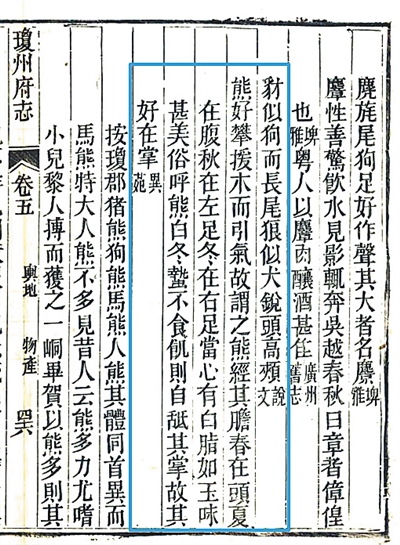 麂旄尾狗足好作聲其大者名麖埤雅
麞性善驚飲水見影輒奔吳越春秋曰章者傽偟
也埤雅粵人以麞肉釀酒甚佳廣州舊志
豺似狗而長尾狼似犬銳頭高頰說文
熊好攀援木而引氣故謂之熊經其膽春在頭夏
在腹秋在左足冬在右足當心有白脂如玉味
甚美俗呼熊白冬蟄不食飢則自舐其掌故其
好在掌異苑
按瓊郡猪熊狗熊馬熊人熊其體同首異而
馬熊特大人熊不多見昔人云熊多力尤嗜
小兒黎人搏而獲之一峒畢賀以熊多則其
瓊州府志 卷五 輿地 物產